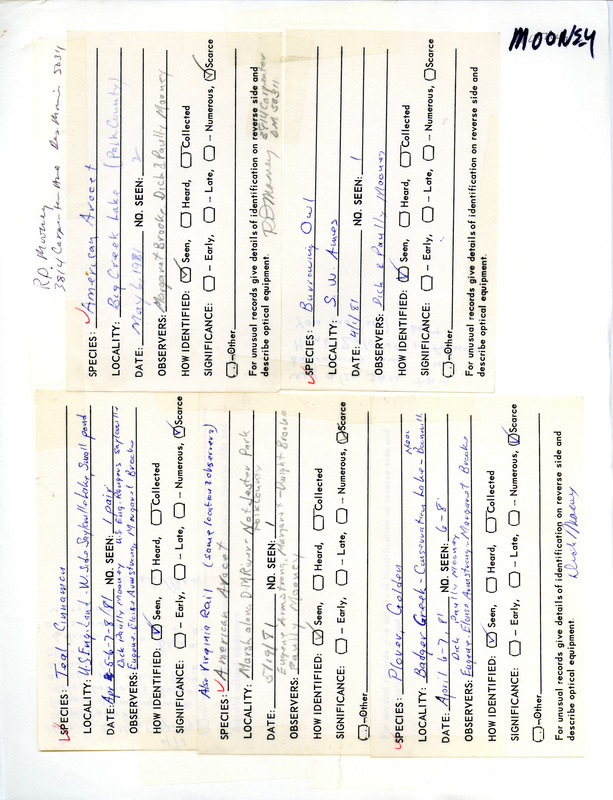 MOONEY
R.D. Mooney
3814 Carpenter Ave Des Moines 50311
SPECIES: American Avocet
LOCALITY: Big Creek Lake (Polk County)
DATE: May 6, 1981 NO. SEEN: 2
OBSERVERS: Margaret Brooke Dick & Paully Mooney
HOW IDENTIFIED: Seen, Heard, Collected
SIGNIFICANCE: – Early, – Late, – Numerous, Scarce
–Other
For unusual records give details of identification on reverse side and
describe optical equipment.
RD Mooney
3814 Carpenter
DM 50311
SPECIES: Burrowing Owl
LOCALITY: S.W. Ames
DATE: 4/1/81 NO. SEEN: 1
OBSERVERS: Dick & Paully Mooney
HOW IDENTIFIED: Seen, Heard, Collected
SIGNIFICANCE: – Early, – Late, – Numerous, Scarce
–Other
For unusual records give details of identification on reverse side and
describe optical equipment.
SPECIES: Teal Cinnamon
LOCALITY: U.S Eng. Land - W. Side Saylorville Lake, Small pond
DATE: Apr 5-6-7-8/81 NO. SEEN: 1 pair
Dick Paully Mooney U.S Eng. Rangers Saylorville
OBSERVERS: Eugene Eloise Armstrong, Margaret Brooke
HOW IDENTIFIED: Seen, Heard, Collected
SIGNIFICANCE: – Early, – Late, – Numerous, Scarce
Also Virginia Rail (same location & observers)
SPECIES: American Avocet
LOCALITY: Marsh along DM River - Not Lester Park
Polk County
DATE: 5/19/81 NO. SEEN: 1
Eugene Armstrong, Margaret - Dwight Brooke
OBSERVERS: Paully Mooney
HOW IDENTIFIED: Seen, Heard, Collected
SIGNIFICANCE: – Early, – Late, – Numerous, Scarce
–Other
SPECIES: Plover, Golden
LOCALITY: Badger Creek - Conservation Lake - Near
DATE: April 6-7, 81 NO. SEEN: 6-8
Dick Paully Mooney
OBSERVERS: Eugene Eloise Armstrong, Margaret Brooke
HOW IDENTIFIED: Seen, Heard, Collected
SIGNIFICANCE: – Early, – Late, – Numerous, Scarce
–Other
For unusual records give details of identification on reverse side and
describe optical equipment.
Dick Mooney